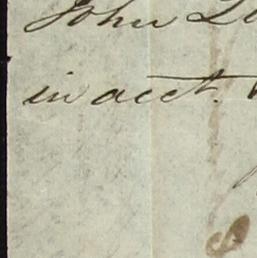 John
in acct.